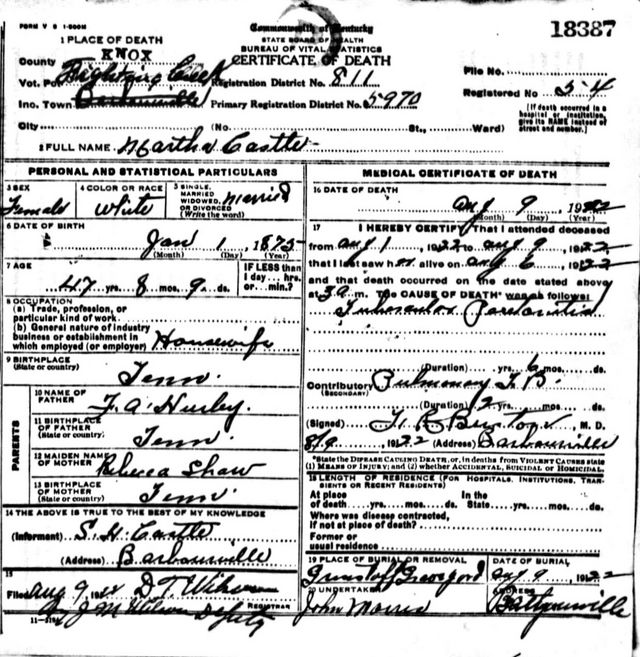 FORM V S 1-500M
Commonwealth of Kentucky
18387
STATE BOARD OF HEALTH
BUREAU OF VITAL STATISTICS
CERTIFICATE OF DEATH
1 PLACE OF DEATH
County KNOX
Vot. Pct. Fighting Creek Registration District No. 811
File No.
Inc. Town Barbourville Primary Registration District No. 5970
Registered No. 54
City (No. St., Ward)
(If death occurred in a hospital or institution, give its NAME instead of street and number.)
2 FULL NAME Martha Castle
PERSONAL AND STATISTICAL PARTICULARS
3 SEX Female
4 COLOR OR RACE White
5 SINGLE, MARRIED WIDOWED, OR DIVORCED (Write the word) Married
6 DATE OF BIRTH
Jan 1, 1875
(Month) (Day) (Year)
7 AGE
47 yrs. 8 mos. 9 ds.
IF LESS than 1 day... hrs. or... min.?
8 OCCUPATION
(a) Trade, profession, or particular kind of work
(b) General nature of industry
business or establishment in
which employed (or employer) Housewife
9 BIRTHPLACE
(State or country) Tenn.
PARENTS
10 NAME OF FATHER
11 BIRTHPLACE OF FATHER
(State or country) Tenn.
12 MAIDEN NAME OF MOTHER Rebecca Shaw
13 BIRTHPLACE OF MOTHER
(State or country) Tenn
14 THE ABOVE IS TRUE TO THE BEST OF MY KNOWLEDGE
(Informant) S. H. Castle
(Address) Barbourville
15
Filed Aug 9 D T
By J M Wilson Deputy REGISTRAR
MEDICAL CERTIFICATE OF DEATH
16 DATE OF DEATH
Aug 9, 1922
(Month) (Day) (Year)
17 I HEREBY CERTIFY, That I attended deceased
from Aug 1, 1922 to Aug 9, 1922
that I last saw her alive on Aug 6, 1922
and that death occurred on the date stated above
at m. The CAUSE OF DEATH* was as follows:
Tubercular Peritonitis
(Duration) yrs. 6 mos. ds.
Contributory Pulmonary T. B.
(SECONDARY)
(Duration) yrs. mos. ds.
(Signed) M. D.
8/9 1922 (Address) Barbourville
*State the DISEASE CAUSING DEATH, or, in deaths from VIOLENT CAUSES state
(1) MEANS OF INJURY; and (2) whether ACCIDENTAL, SUICIDAL or HOMICIDAL.
18 LENGTH OF RESIDENCE (FOR HOSPITALS, INSTITUTIONS, TRANSIENTS OR RECENT RESIDENTS)
At place of death yrs. mos. ds. In the State yrs. mos. ds.
Where was disease contracted,
if not at place of death?
Former or
usual residence
19 PLACE OF BURIAL OR REMOVAL
DATE OF BURIAL
Aug 9, 1922
20 UNDERTAKER
John
ADDRESS